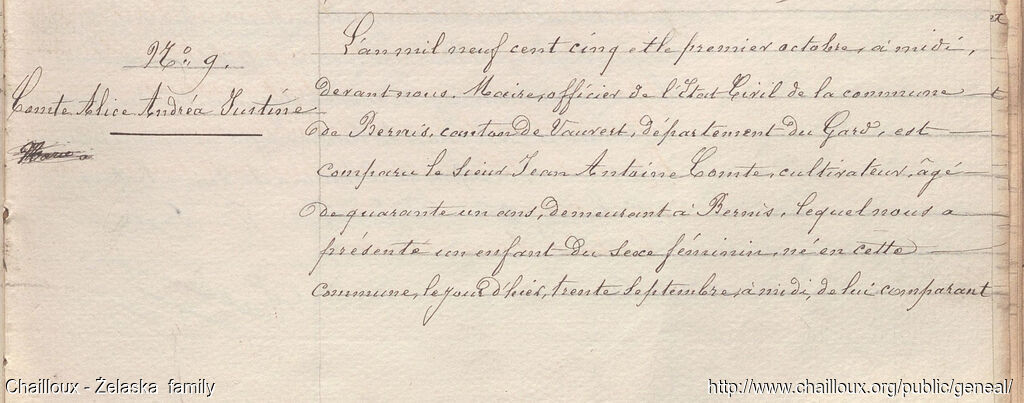 N° 9.
Comte Alice Andréa Justine
L'an mil neuf cent cinq et le premier octobre, à midi,
devant nous. Maire, officier de l'Etat Civil de la commune
de Bernis, canton de Vauvert, département du Gard, est
comparu le sieur Jean Antoine Comte, cultivateur, âgé
de quarante un ans, demeurant à Bernis, lequel nous a
présenté un enfant du sexe féminin, né en cette
commune, le jour d'hier, trente septembre, à midi, de lui comparant
Chailloux - Żelaska family
http://www.chailloux.org/public/geneal/